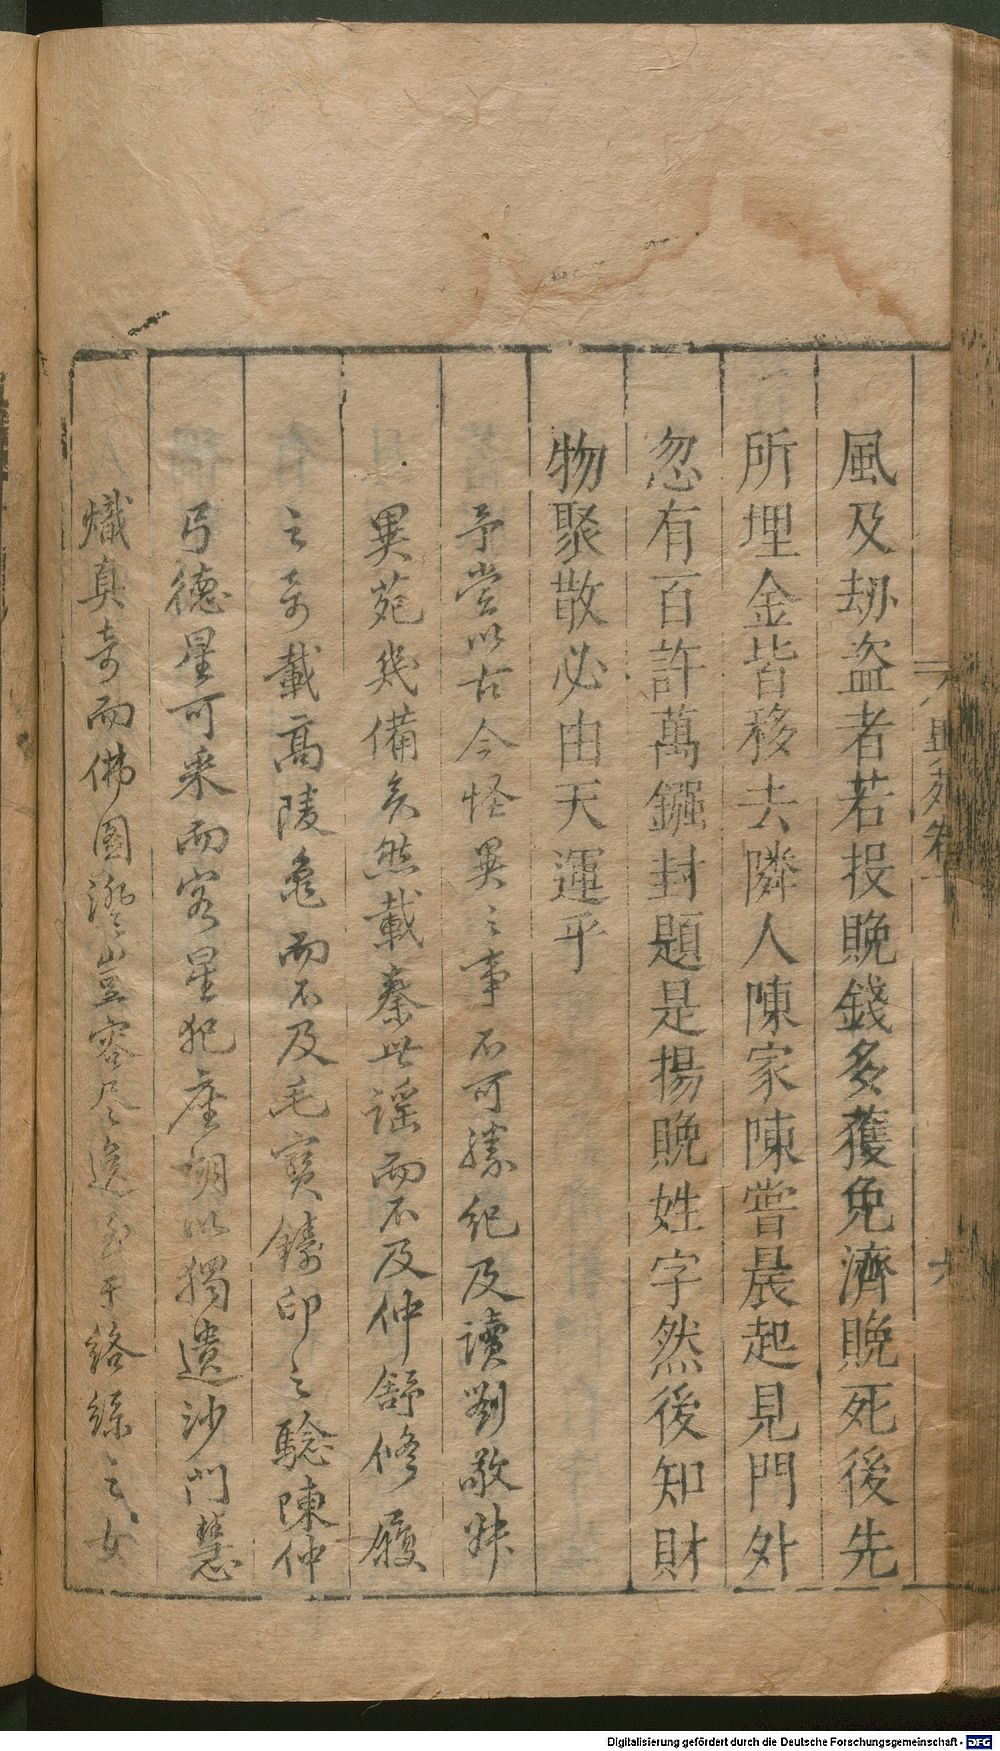 風及劫盜者若投晚錢多獲免濟晚死後先
所埋金皆移去隣人陳家陳嘗晨起見門外
忽有百許萬鏹封題是揚晚姓字然後知財
物聚散必由天運乎
予嘗以古今怪異之事不可勝紀及讀劉敬叔
異苑幾備矣然載秦世謡而不及仲舒修履
之奇載高陵龜而不及毛寳鑄印之騐陳仲
弓德星可采而客星犯座胡以獨遺沙門慧
熾真奇而佛圖澄豈容尽逸至于絡絲之女
異苑卷十
Digitalisierung gefördert durch die Deutsche Forschungsgemeinschaft - DFG